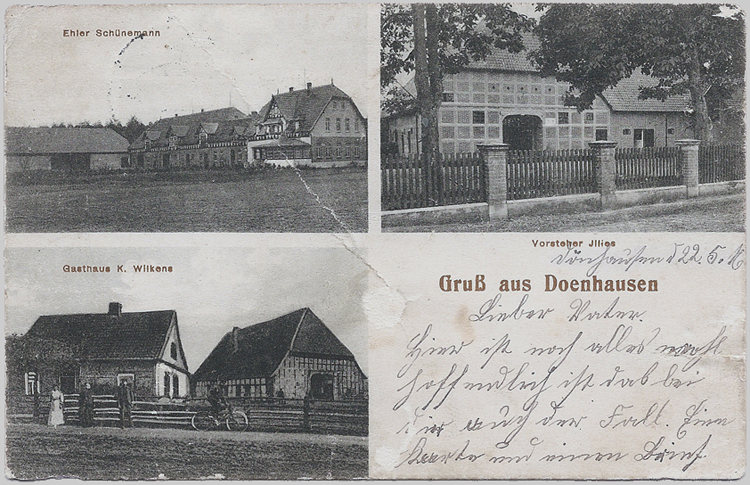 Ehler Schünemann
Vorsteher Jllies
Gasthaus K. Wilkens
Gruß aus Doenhausen
Dönhausen d 22. 5. 16
Lieber Vater.
Hier ist noch alles wohl
hoffendlich ist das bei
Dir auch der Fall. Eine
Karte und einen Brief